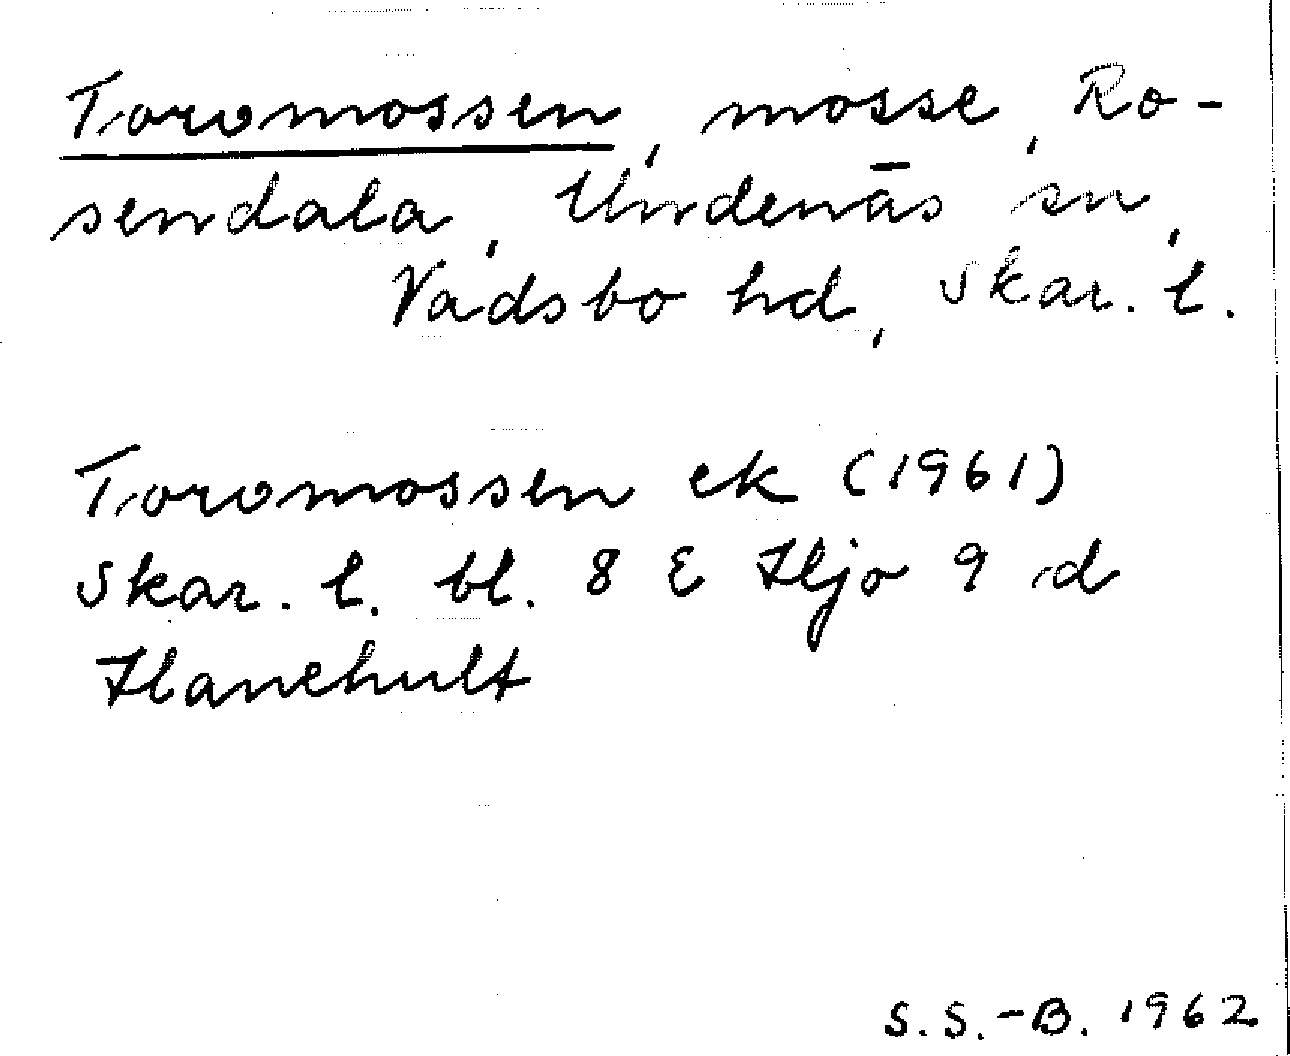 Torvmossen, mosse, Ro-
sendala, Undenäs sn,
Vadsbo hd, Skar. l.
Torvmossen ek (1961)
Skar. l. bl. 8 E Hjo 9 d
Hanehult
S.S.-B. 1962